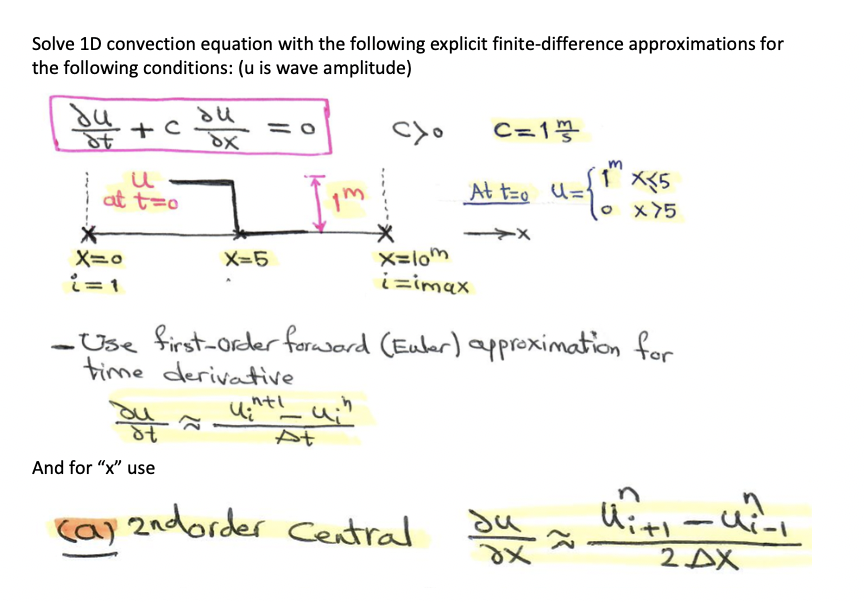 Solve 1D convection equation with the following explicit finite-difference approximations for
the following conditions: (u is wave amplitude)
∂u/∂t + c ∂u/∂x = 0    c>0    c=1 m/s
u at t=0    1m    At t=0 u={1m x≤5
0 x>5
→x
x=0    x=5    x=10m
i=1    i=imax
- Use first-order forward (Euler) approximation for
time derivative
∂u/∂t ≈ (uᵢⁿ⁺¹ - uᵢⁿ)/Δt
And for “x” use
(a) 2nd order Central    ∂u/∂x ≈ (uⁿᵢ₊₁ - uⁿᵢ₋₁)/2Δx